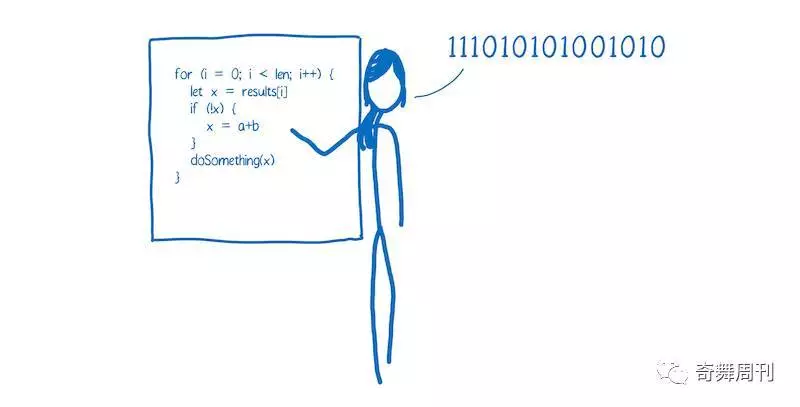 for (i = 0; i < len; i++) {
let x = results[i]
if (!x) {
x = a+b
}
doSomething(x)
}
111010101001010
奇舞周刊